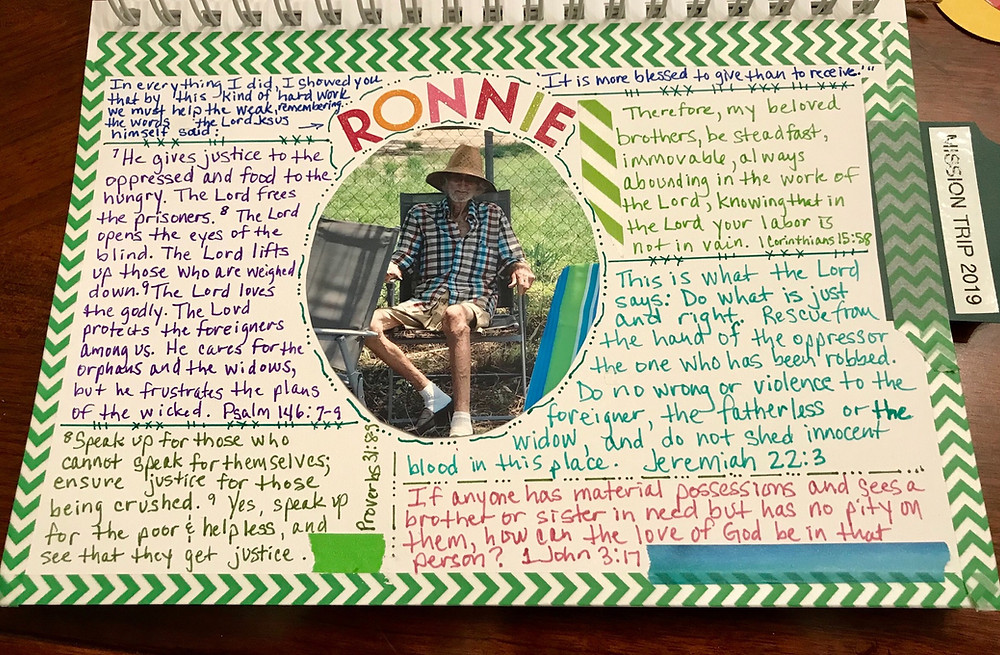 In everything I did, I showed you
that by this kind of hard work
we must help the weak, remembering
the words the Lord Jesus
himself said: →
"It is more blessed to give than to receive."
RONNIE
⁷He gives justice to the
oppressed and food to the
hungry. The Lord frees
the prisoners. ⁸ The Lord
opens the eyes of the
blind. The Lord lifts
up those who are weighed
down. ⁹The Lord loves
the godly. The Lord
protects the foreigners
among us. He cares for the
orphans and the widows,
but he frustrates the plans
of the wicked. Psalm 146:7-9
⁸Speak up for those who
cannot speak for themselves;
ensure justice for those
being crushed. ⁹ Yes, speak up
for the poor & helpless, and
see that they get justice.
Proverbs 31:8-9
Therefore, my beloved
brothers, be steadfast,
immovable, always
abounding in the work of
the Lord, knowing that in
the Lord your labor is
not in vain. 1 Corinthians 15:58
This is what the Lord
says: Do what is just
and right. Rescue from
the hand of the oppressor
the one who has been robbed.
Do no wrong or violence to the
foreigner, the fatherless or the
widow, and do not shed innocent
blood in this place. Jeremiah 22:3
If anyone has material possessions and sees a
brother or sister in need but has no pity on
them, how can the love of God be in that
person? 1 John 3:17
MISSION TRIP 2019